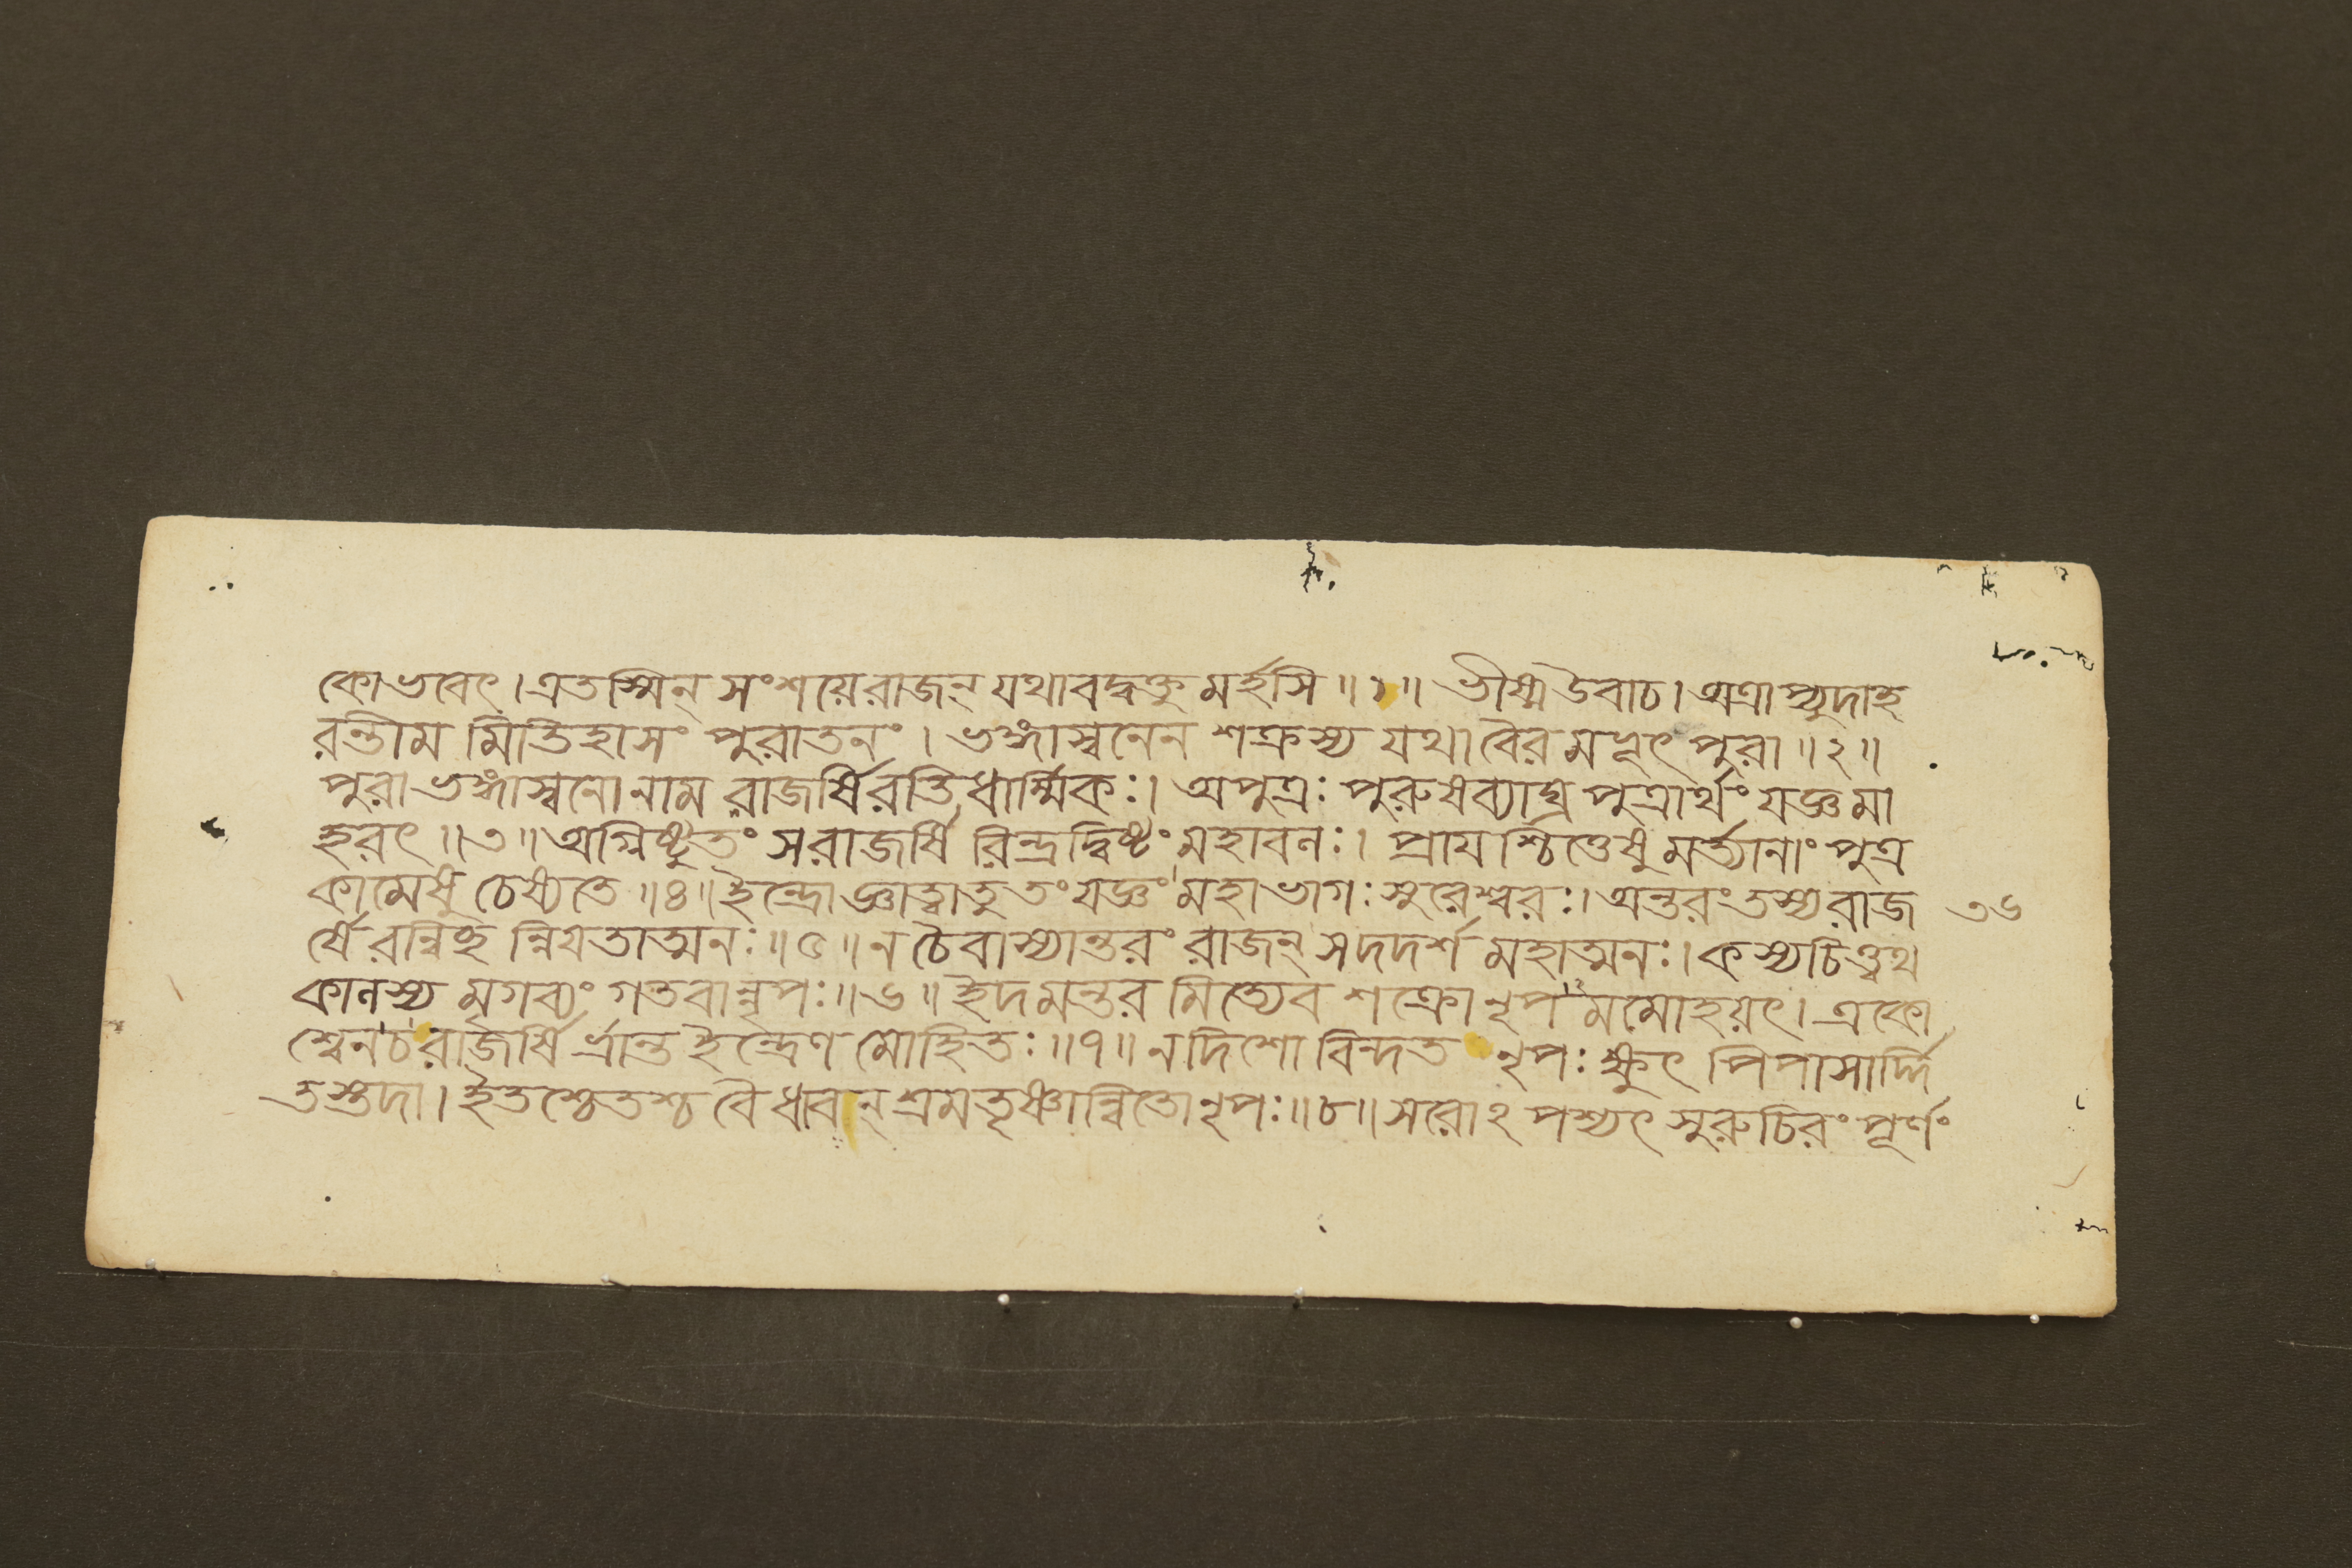 কোভবেৎ। এতস্মিন্ সংশয়েরাজন্ যথাবদ্বক্তু মর্হসি॥১॥ ভীষ্ম উবাচ। অত্রাপ্যুদাহ
রন্তীম মিতিহাসং পুরাতনং। ভঙ্গাস্বনেন শক্রস্য যথা বৈর মভূৎ পুরা॥২॥
পুরাভঙ্গাস্বনো নাম রাজর্ষিরতিধার্ম্মিকঃ। অপুত্রঃ পুরুষব্যাঘ্র পুত্রার্থং যজ্ঞমা
হরৎ॥৩॥ অগ্নিষ্টুতং সরাজর্ষি রিন্দ্রদ্বিষ্টং মহাবলঃ। প্রাযশ্চিত্তেষু মর্ত্যানাং পুত্র
কামেষু চেষ্যতে॥৪॥ ইন্দ্রোজ্ঞাত্বাতু তং যজ্ঞং মহাভাগঃ সুরেশ্বরঃ। অন্তরং তস্যরাজ
র্ষে রন্বিচ্ছ ন্নিযতাত্মনঃ॥৫॥ ন চৈবাস্যান্তরং রাজন্ সদদর্শ মহাত্মনঃ। কস্যচিত্ত্বথ
কালস্য মৃগব্যং গতবান্নৃপঃ॥৬॥ ইদমন্তর মিত্যেব শক্রো নৃপ মমোহয়ৎ। একো
শ্বেন চ রাজর্ষি র্ভ্রান্ত ইন্দ্রেণ মোহিতঃ॥৭॥ ন দিশো বিন্দত নৃপঃ ক্ষুৎ পিপাসার্দ্দি
তস্তদা। ইতশ্চেতশ্চ বৈ ধাবন্ শ্রমতৃষ্ণান্বিতো নৃপঃ॥৮॥ সরোঽপশ্যৎ সুরুচিরং পূর্ণং
৩৬